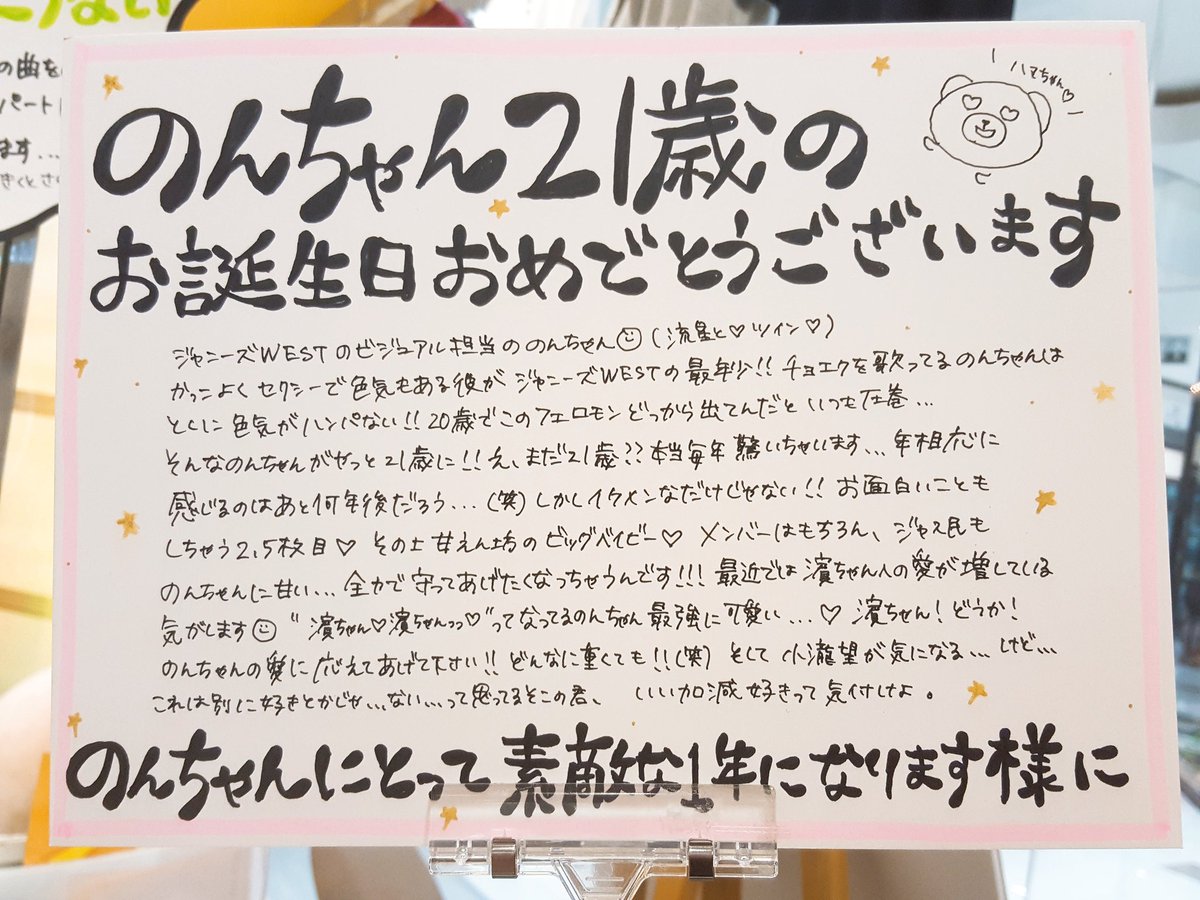 のんちゃん21歳の
お誕生日おめでとうございます
ハマちゃん♡
ジャニーズWESTのビジュアル担当ののんちゃん☺(流星と♡ツイン♡)
かっこよくセクシーで色気もある彼がジャニーズWESTの最年少!!チョエクを歌ってるのんちゃんは
とくに色気がハンパない!!20歳でこのフェロモンどっから出てんだといつも圧巻…
そんなのんちゃんがやっと21歳に!!え、まだ21歳??本当毎年驚いちゃいます…年相応に
感じるのはあと何年後だろう…(笑)しかしイケメンなだけじゃない!!お面白いことも
しちゃう2,5枚目♡その上甘えん坊のビッグベイビー♡メンバーはもちろん、ジャス民も
のんちゃんに甘い…全力で守ってあげたくなっちゃうんです!!!最近では濵ちゃんへの愛が増している
気がします☺"濵ちゃん♡濵ちゃんっっ♡"ってなってるのんちゃん最強に可愛い…♡濵ちゃん!どうか!
のんちゃんの愛に応えてあげて下さい!!どんなに重くても!!(笑)そして小瀧望が気になる…けど…
これは別に好きとかじゃ…ない…って思ってるそこの君、いい加減好きって気付けよ。
のんちゃんにとって素敵な1年になります様に
の曲を
パート
ます…